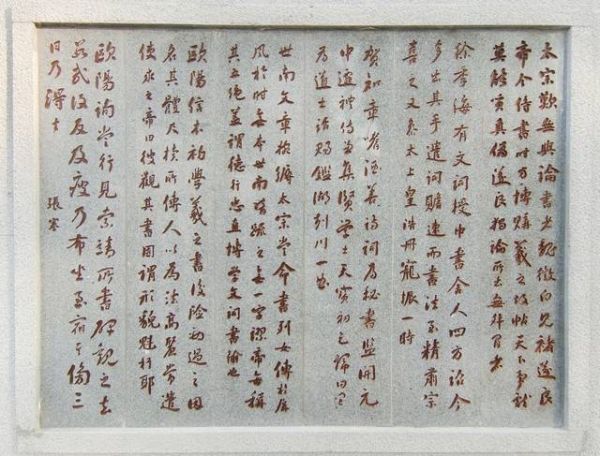 太宗歎無與論書者魏徵白見褚遂良
帝令侍書時方博購羲之故帖天下爭獻
莫能質真偽遂良獨論所出無舛冒者
徐季海有文詞授中書舍人四方詔令
多出其手遣詞贍速而書法至精肅宗
喜之又參太上皇誥冊寵振一時
賀知章嗜酒善詩詞為秘書監開元
中遷禮侍為集賢學士天寶初乞歸田里
為道士詔賜鑑湖剡川一曲
世南文章婉縟太宗嘗命書列女傳於屏
風於時無本世南暗疏之無一字謬帝每稱
其五絕蓋謂德行忠直博學文詞書翰也
歐陽信本初學羲之書後險勁過之因
名其體尺牘所傳人以為法高麗嘗遣
使求之帝曰彼觀其書固謂形貌魁梧耶
歐陽詢嘗行見索靖所書碑觀之去
數武復反及疲乃布坐至宿其傍三
日乃得去 張